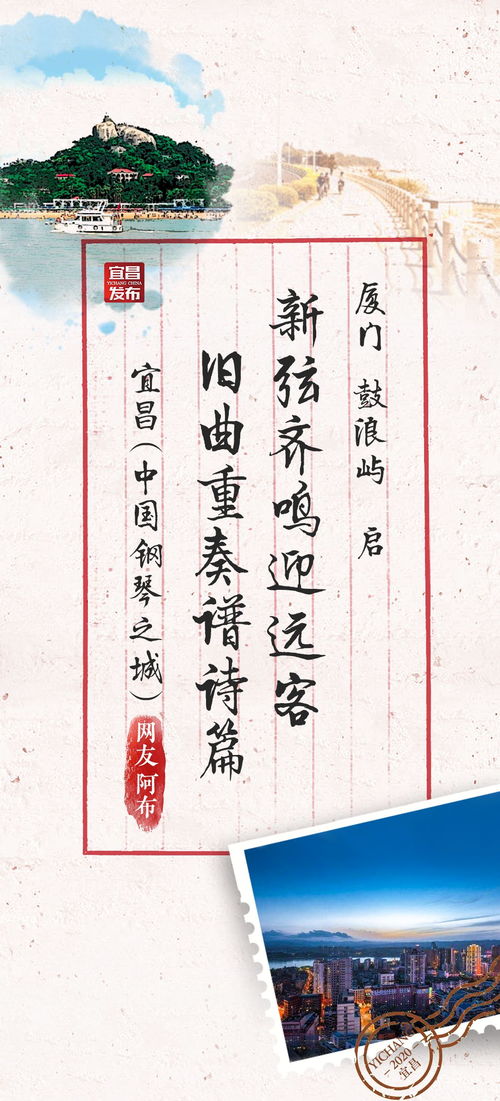 厦门 鼓浪屿 启
新弦齐鸣迎远客
旧曲重奏谱诗篇
宜昌(中国钢琴之城)
网友阿布
宜昌
YICHANG CHINA
发布
YICHANG
2020
宜昌